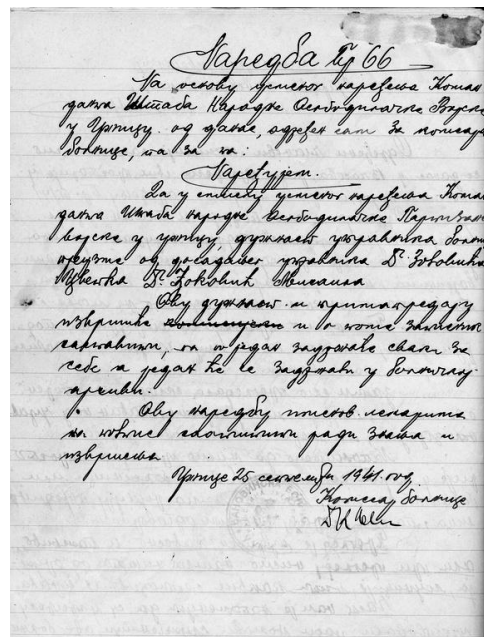 Наредба Бр 66
На основу усменог наређења Коман
данта Штаба Народне Ослободилачке Војске
у Ужицу од данас, одређен сам за комесара
болнице, па за то:
Наређујем.
Да у смислу усменог наређења Коман
данта Штаба народне Ослободилачке Партизанске
војске у Ужицу, дужност управника болнице
преузме од досадашњег управника Др.
Др. Ђоковић
Ову дужност и примопредају
извршиће и о томе записник
саставити, па један задржаће сваки за
себе а један ће се задржати у болничкој
архиви.
Ову наредбу
саопштити ради знања и
извршења
Ужице 25 септембра 1941. год.
Комесар болнице